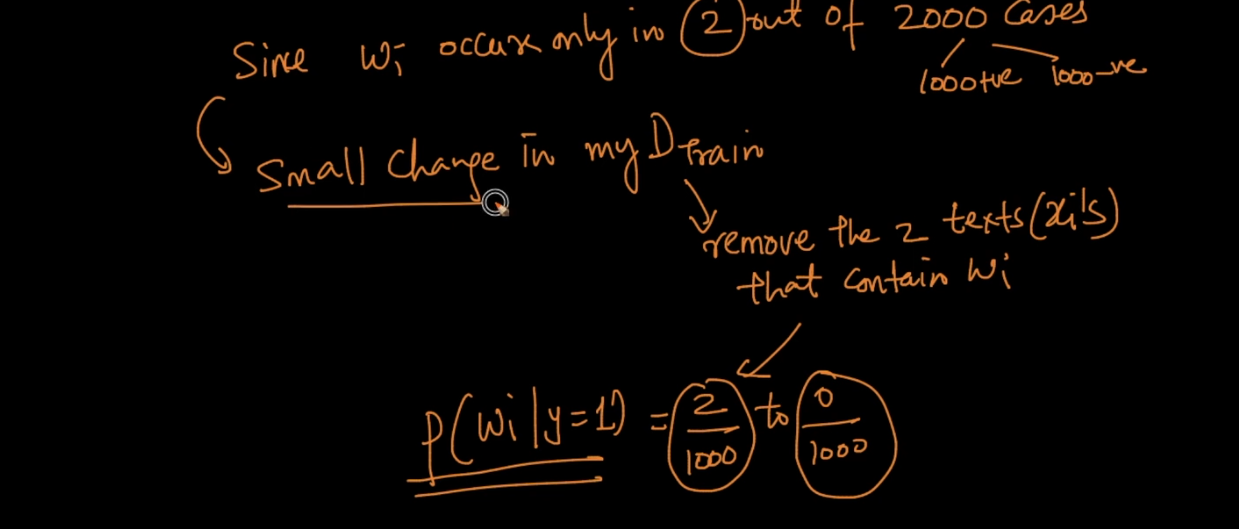 Since wi occurs only in 2 out of 2000 Cases
1000+ve 1000-ve
Small Change in my Dtrain
remove the 2 texts(xi's)
that contain Wi
P(Wi|y=1) = 2/1000 to 0/1000